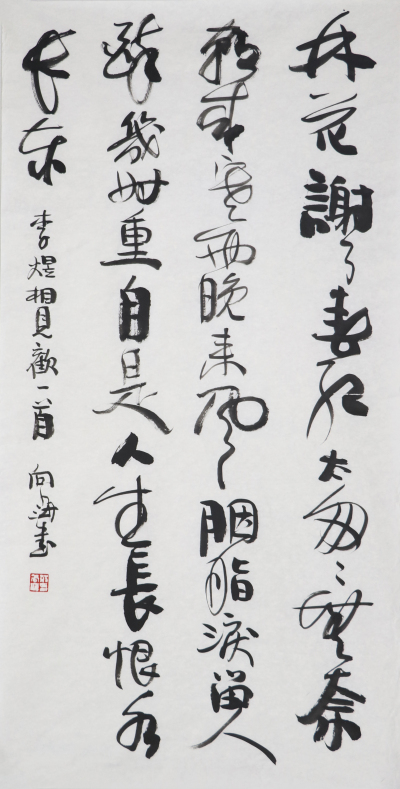 林花謝了春紅太匆々無奈
朝來寒雨晚来風胭脂淚留人
醉幾時重自是人生長恨水
长东
李煜相見歡一首 向海書